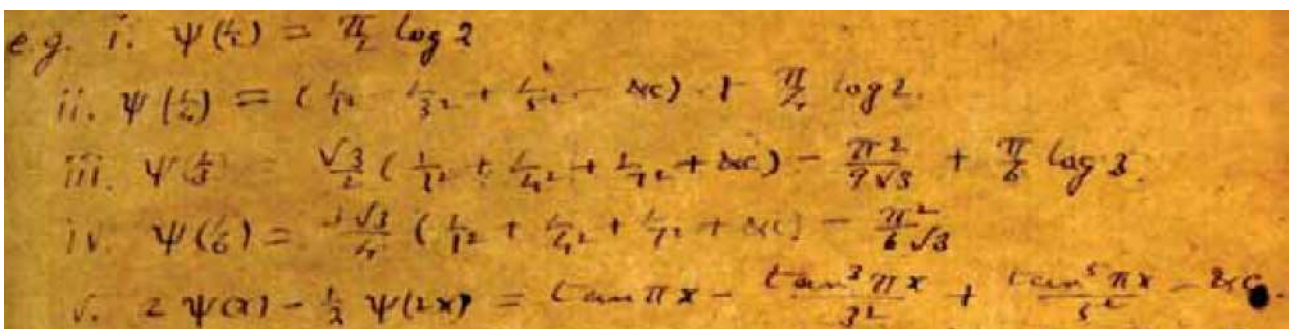 e.g. i. ψ(1/2) = π/2 log 2
ii. ψ(1/4) = (1/1² - 1/3² + 1/5² - &c) + π/4 log 2.
iii. ψ(1/3) = √3/2 (1/1² + 1/4² + 1/7² + &c) - π²/9√3 + π/6 log 3.
iv. ψ(1/6) = 3√3/4 (1/1² + 1/4² + 1/7² + &c) - π²/6√3
v. 2 ψ(x) - 1/2 ψ(2x) = tan πx - tan³ πx/3² + tan⁵ πx/5² - &c.